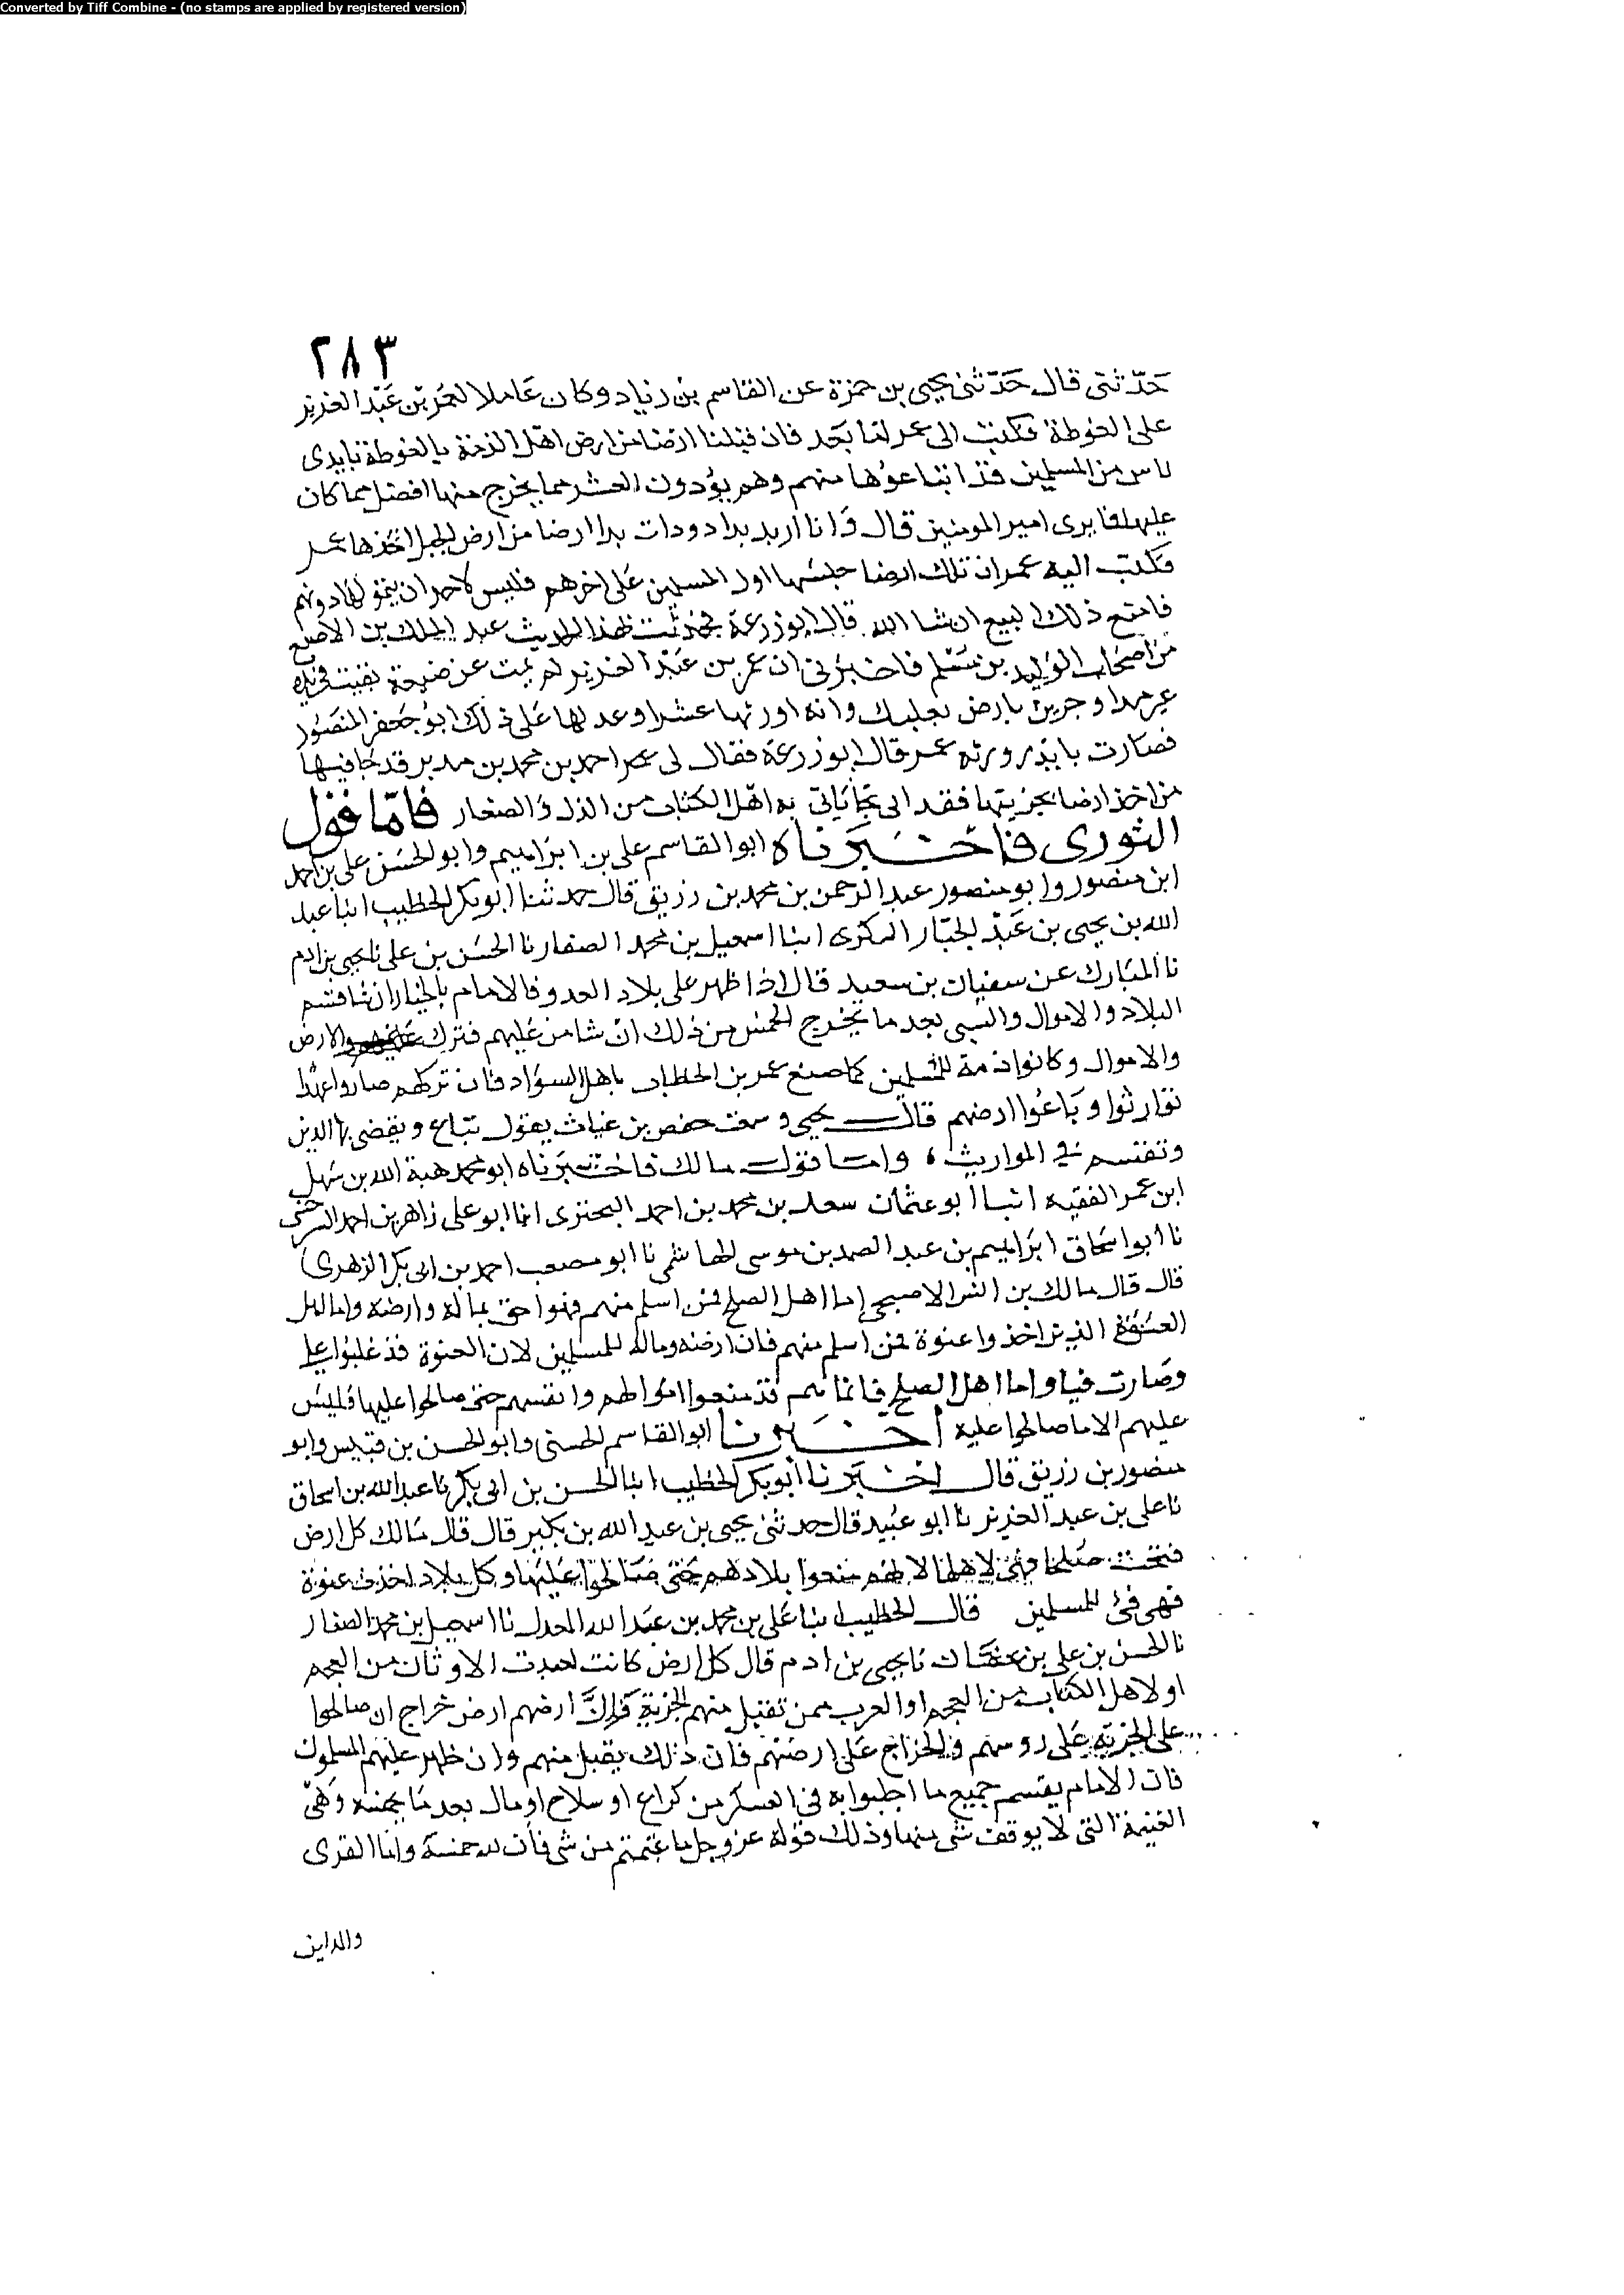 Converted by Tiff Combine - (no stamps are applied by registered version)
٢٨٣
حدثتى قال حدثنى يحيى بن حمزة عن القاسم بن زياد وكان عاملا لعمر بن عبد العزيز
على الغوطة فكتبت الى عمر اما بعد فان قبلنا ارضا من ارض اهل الذمة بالغوطة بايدى
ناس من المسلمين قد ابتاعوها منهم وهم يؤدون العشر مما يخرج منها افضل مما كان
عليها فما يرى امير المومنين قال وانا اريد بدا دودات بدا ارضا من ارض الجبل اتخذها عمر
فكتب اليه عمر ان تلك ارضا حبسها اول المسلمين على اخرهم فليس لاحد ان يتمولها دونهم
فامتنع ذلك البيع ان شا الله قال ابو زرعة فحدثت بهذا الحديث عبد الملك بن الاصبغ
من اصحاب الوليد بن مسلم فاخبرنى ان عمر بن عبد العزيز لم يمت عن ضيعة بقيت فى يده
غير مدا وجرين بارض بعلبك وانه اورثها عشرا وعد لها على ذلك ابو جعفر المنصور
فصارت بايدى ورثه عمر قال ابو زرعة فقال لى عمر احمد بن محمد بن مدبر قد جا فيها
من اخذ ارضا بجزيتها فقد اتى بما ياتى به اهل الكتاب من الذل والصغار فاما قول
الثورى فاخبرناه ابو القاسم على بن ابراهيم وابو الحسن على بن احمد
ابن منصور وابو منصور عبد الرحمن بن محمد بن زريق قال حدثنا ابو بكر الخطيب انبا عبد
الله بن يحيى بن عبد الجبار السكرى انبا اسمعيل بن محمد الصفار نا الحسن بن على نا يحيى بن ادم
نا المبارك عن سفيان بن سعيد قال اذا ظهر على بلاد العدو فالامام بالخيار ان شا قسم
البلاد والاموال والسبى بعد ما يخرج الخمس من ذلك ان شا من عليهم فترك والارض
والاموال وكانوا ذمة للمسلمين كما صنع عمر بن الخطاب باهل السواد فان تركهم صاروا عهدا
توارثوا وباعوا ارضهم قال يحيى وسمعت حفص بن غياث يقول تباع ويقضى بها الدين
وتقتسم فى المواريث واما قول مالك فاخبرناه ابو محمد هبة الله بن سهل
ابن عمر الفقيه انبا ابو عثمان سعد بن محمد بن احمد البحترى انا ابو على زاهر بن احمد السرخسى
نا ابو اسحاق ابراهيم بن عبد الصمد بن موسى الهاشمى نا ابو مصعب احمد بن ابى بكر الزهرى
قال قال مالك بن انس الاصبحى اما اهل الصلح فمن اسلم منهم فهوا حق بماله وارضه واما اهل
العنوة الذين اخذوا عنوة فمن اسلم منهم فان ارضه وماله للمسلمين لان العنوة قد غلبوا على
وصارت فيا واما اهل الصلح فانما هم قد منعوا اموالهم وانفسهم حتى صالحوا عليها فليس
عليهم الا ما صالحوا عليه اخبرنا ابو القاسم الحسنى وابو الحسن بن قبيس وابو
منصور بن زريق قال اخبرنا ابو بكر الخطيب انبا الحسن بن ابى بكر نا عبد الله بن اسحاق
نا على بن عبد العزيز نا ابو عبيد قال حدثنى يحيى بن عبد الله بن بكير قال قال مالك كل ارض
فتحت صلحا فهى لاهلها لانهم منعوا بلادهم حتى صالحوا عليها وكل بلاد اخذت عنوة
فهى فئ للمسلمين قال الخطيب انبا على بن محمد بن عبد الله المعدل نا اسمعيل بن محمد الصفار
نا الحسن بن على بن عفان نا يحيى بن ادم قال كل ارض كانت لعبدت الاوثان من العجم
او لاهل الكتاب من العجم او العرب ممن تقبل منهم الجزية فان ارضهم ارض خراج ان صالحوا
على الجزية على روسهم والخراج على ارضهم فان ذلك يقبل منهم وان ظهر عليهم المسلمون
فان الامام يقسم جميع ما اجلبوا به فى العسكر من كراع او سلاح او مال بعد ما يخمسه وهى
الغنيمة التى لا يوقف شى منها وذلك قوله عز وجل ما غنمتم من شى فان لله خمسه واما القرى
والمداين